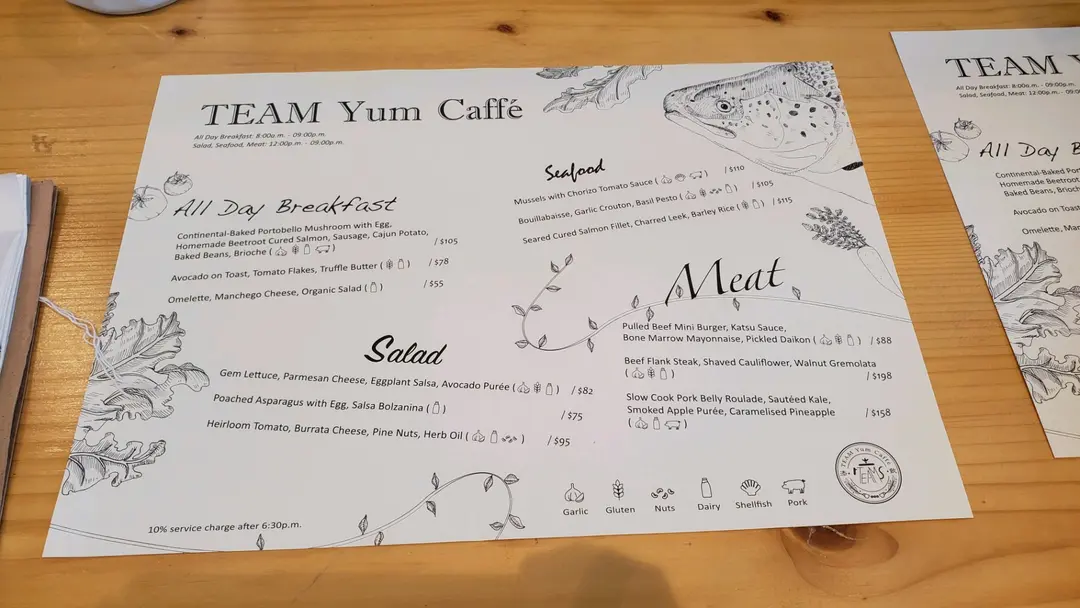 TEAM Yum Caffé
All Day Breakfast: 8:00a.m. - 09:00p.m.
Salad, Seafood, Meat: 12:00p.m. - 09:00p.m.
All Day Breakfast
Continental-Baked Portobello Mushroom with Egg,
Homemade Beetroot Cured Salmon, Sausage, Cajun Potato,
Baked Beans, Brioche ( ) / $105
Avocado on Toast, Tomato Flakes, Truffle Butter ( ) / $78
Omelette, Manchego Cheese, Organic Salad ( ) / $55
Salad
Gem Lettuce, Parmesan Cheese, Eggplant Salsa, Avocado Purée ( ) / $82
Poached Asparagus with Egg, Salsa Bolzanina ( ) / $75
Heirloom Tomato, Burrata Cheese, Pine Nuts, Herb Oil ( ) / $95
10% service charge after 6:30p.m.
Seafood
Mussels with Chorizo Tomato Sauce ( ) / $110
Bouillabaisse, Garlic Crouton, Basil Pesto ( ) / $105
Seared Cured Salmon Fillet, Charred Leek, Barley Rice ( ) / $115
Meat
Pulled Beef Mini Burger, Katsu Sauce,
Bone Marrow Mayonnaise, Pickled Daikon ( ) / $88
Beef Flank Steak, Shaved Cauliflower, Walnut Gremolata
( ) / $198
Slow Cook Pork Belly Roulade, Sautéed Kale,
Smoked Apple Purée, Caramelised Pineapple / $158
( )
Garlic Gluten Nuts Dairy Shellfish Pork
TEAM Yum Caffé
TEAM
All Day Breakfast: 8:00a.m. - 09:00p.m.
Salad, Seafood, Meat: 12:00p.m. - 09:00
All Day B
Continental-Baked Por
Homemade Beetroot
Baked Beans, Brioche
Avocado on Toast
Omelette, Man